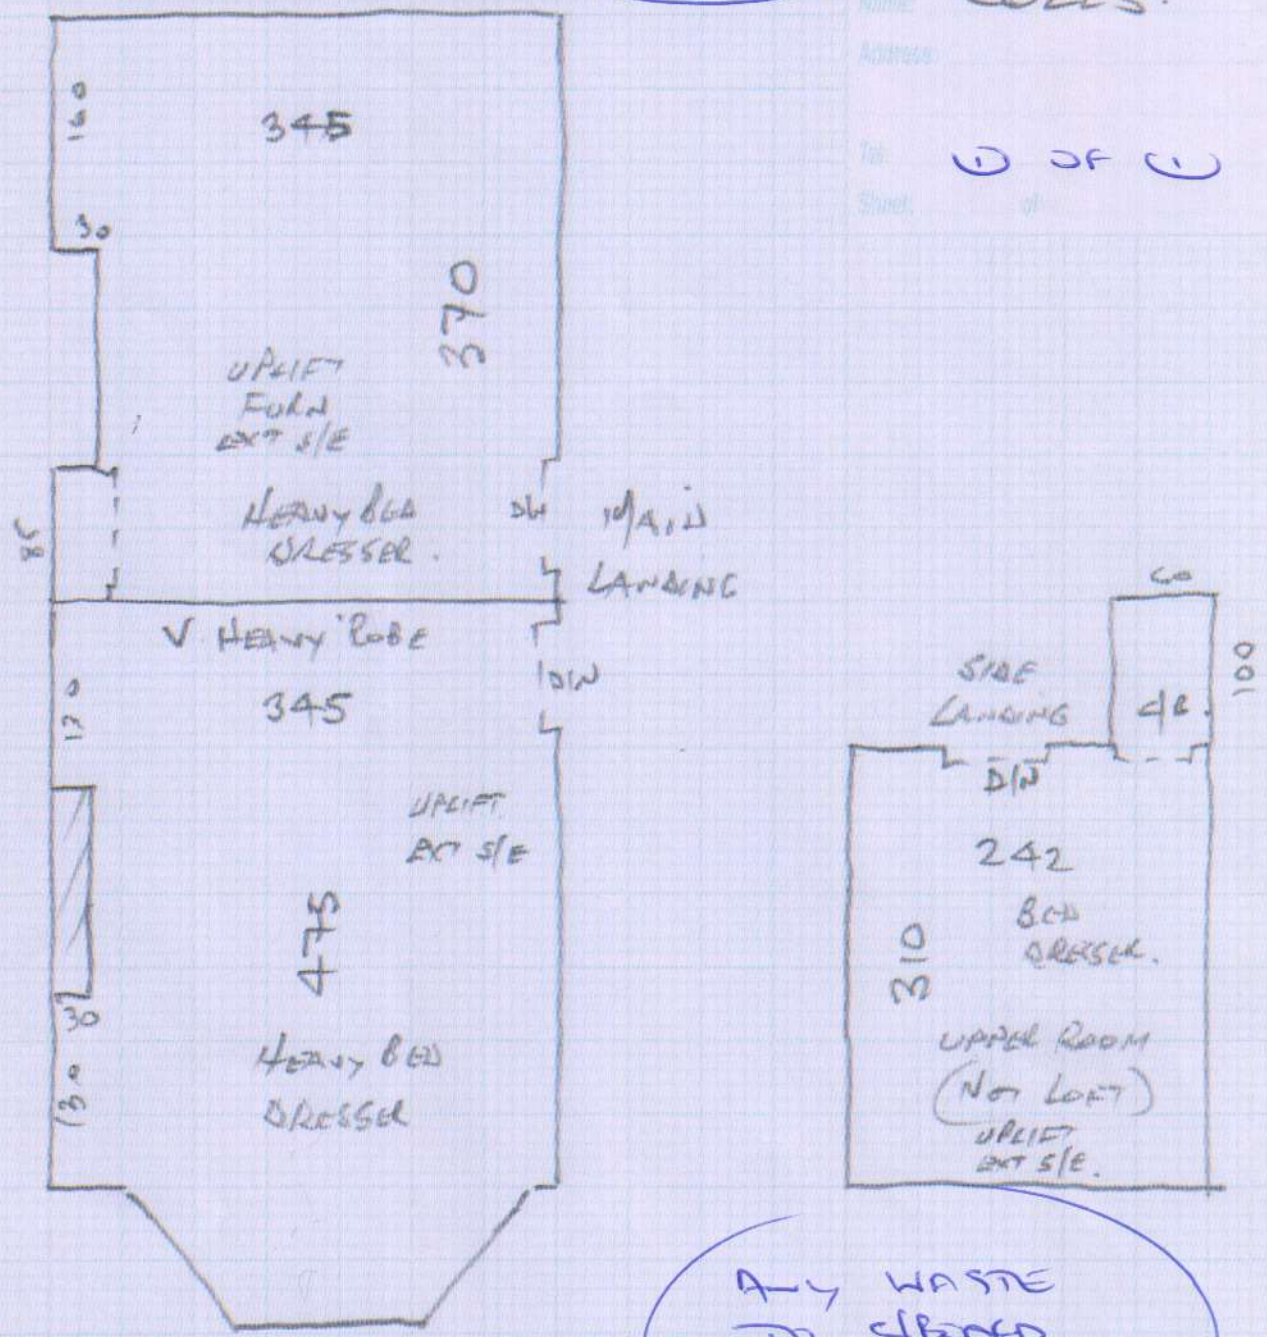 Name:
Address:
Tel:
① OF ①
Sheet: of
160
345
30
370
UPLIFT
FURN
EXT S/E
HEAVY BED
DRESSER.
D/N
MAIN
LANDING
85
V. HEAVY ROBE
D/N
120
345
UPLIFT
EXT S/E
475
30
HEAVY BED
DRESSER
130
60
100
SIDE
LANDING
C/B.
D/N
242
BED
DRESSER.
310
UPPER ROOM
(NOT LOFT)
UPLIFT
EXT S/E.
ANY WASTE